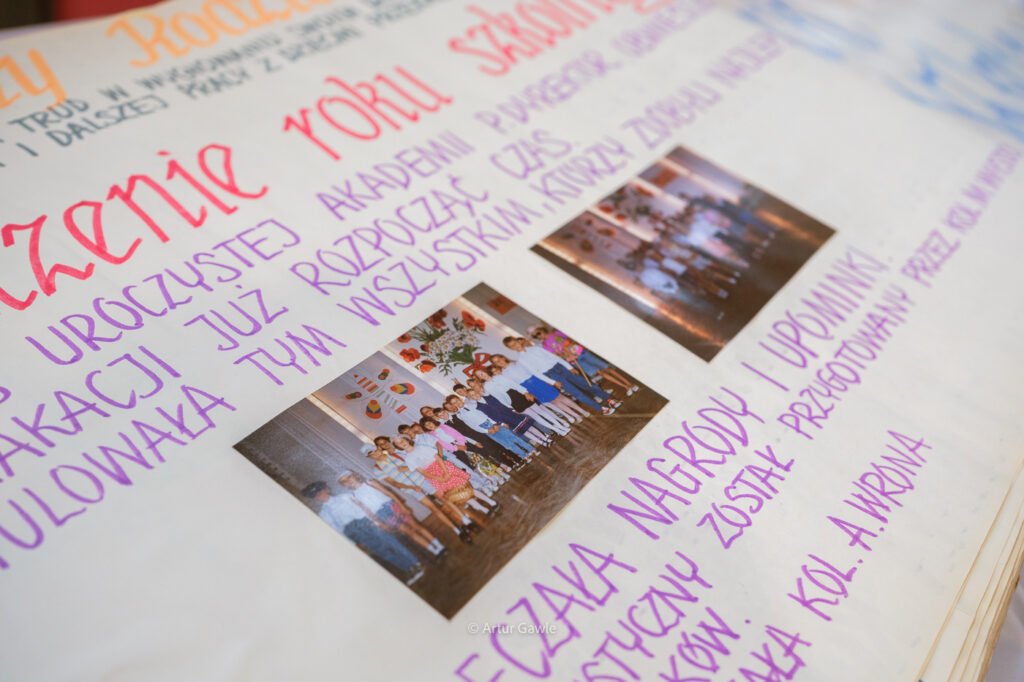 TRUD W WYCHOWANIU SWOICH
I DALSZEJ PRACY Z DZIEĆMI
zenie roku szkolnego
UROCZYSTEJ AKADEMII P. DYREKTOR
AKACJI JUŻ ROZPOCZĄĆ CZAS.
ULOWAŁA TYM WSZYSTKIM, KTÓRZY ZDOBYLI NAJLEP
ECZAŁA NAGRODY I UPOMINKI.
STYCZNY ZOSTAŁ PRZYGOTOWANY PRZEZ KOL.
KÓW.
AŁA KOL. A. WRONA
© Artur Gawle